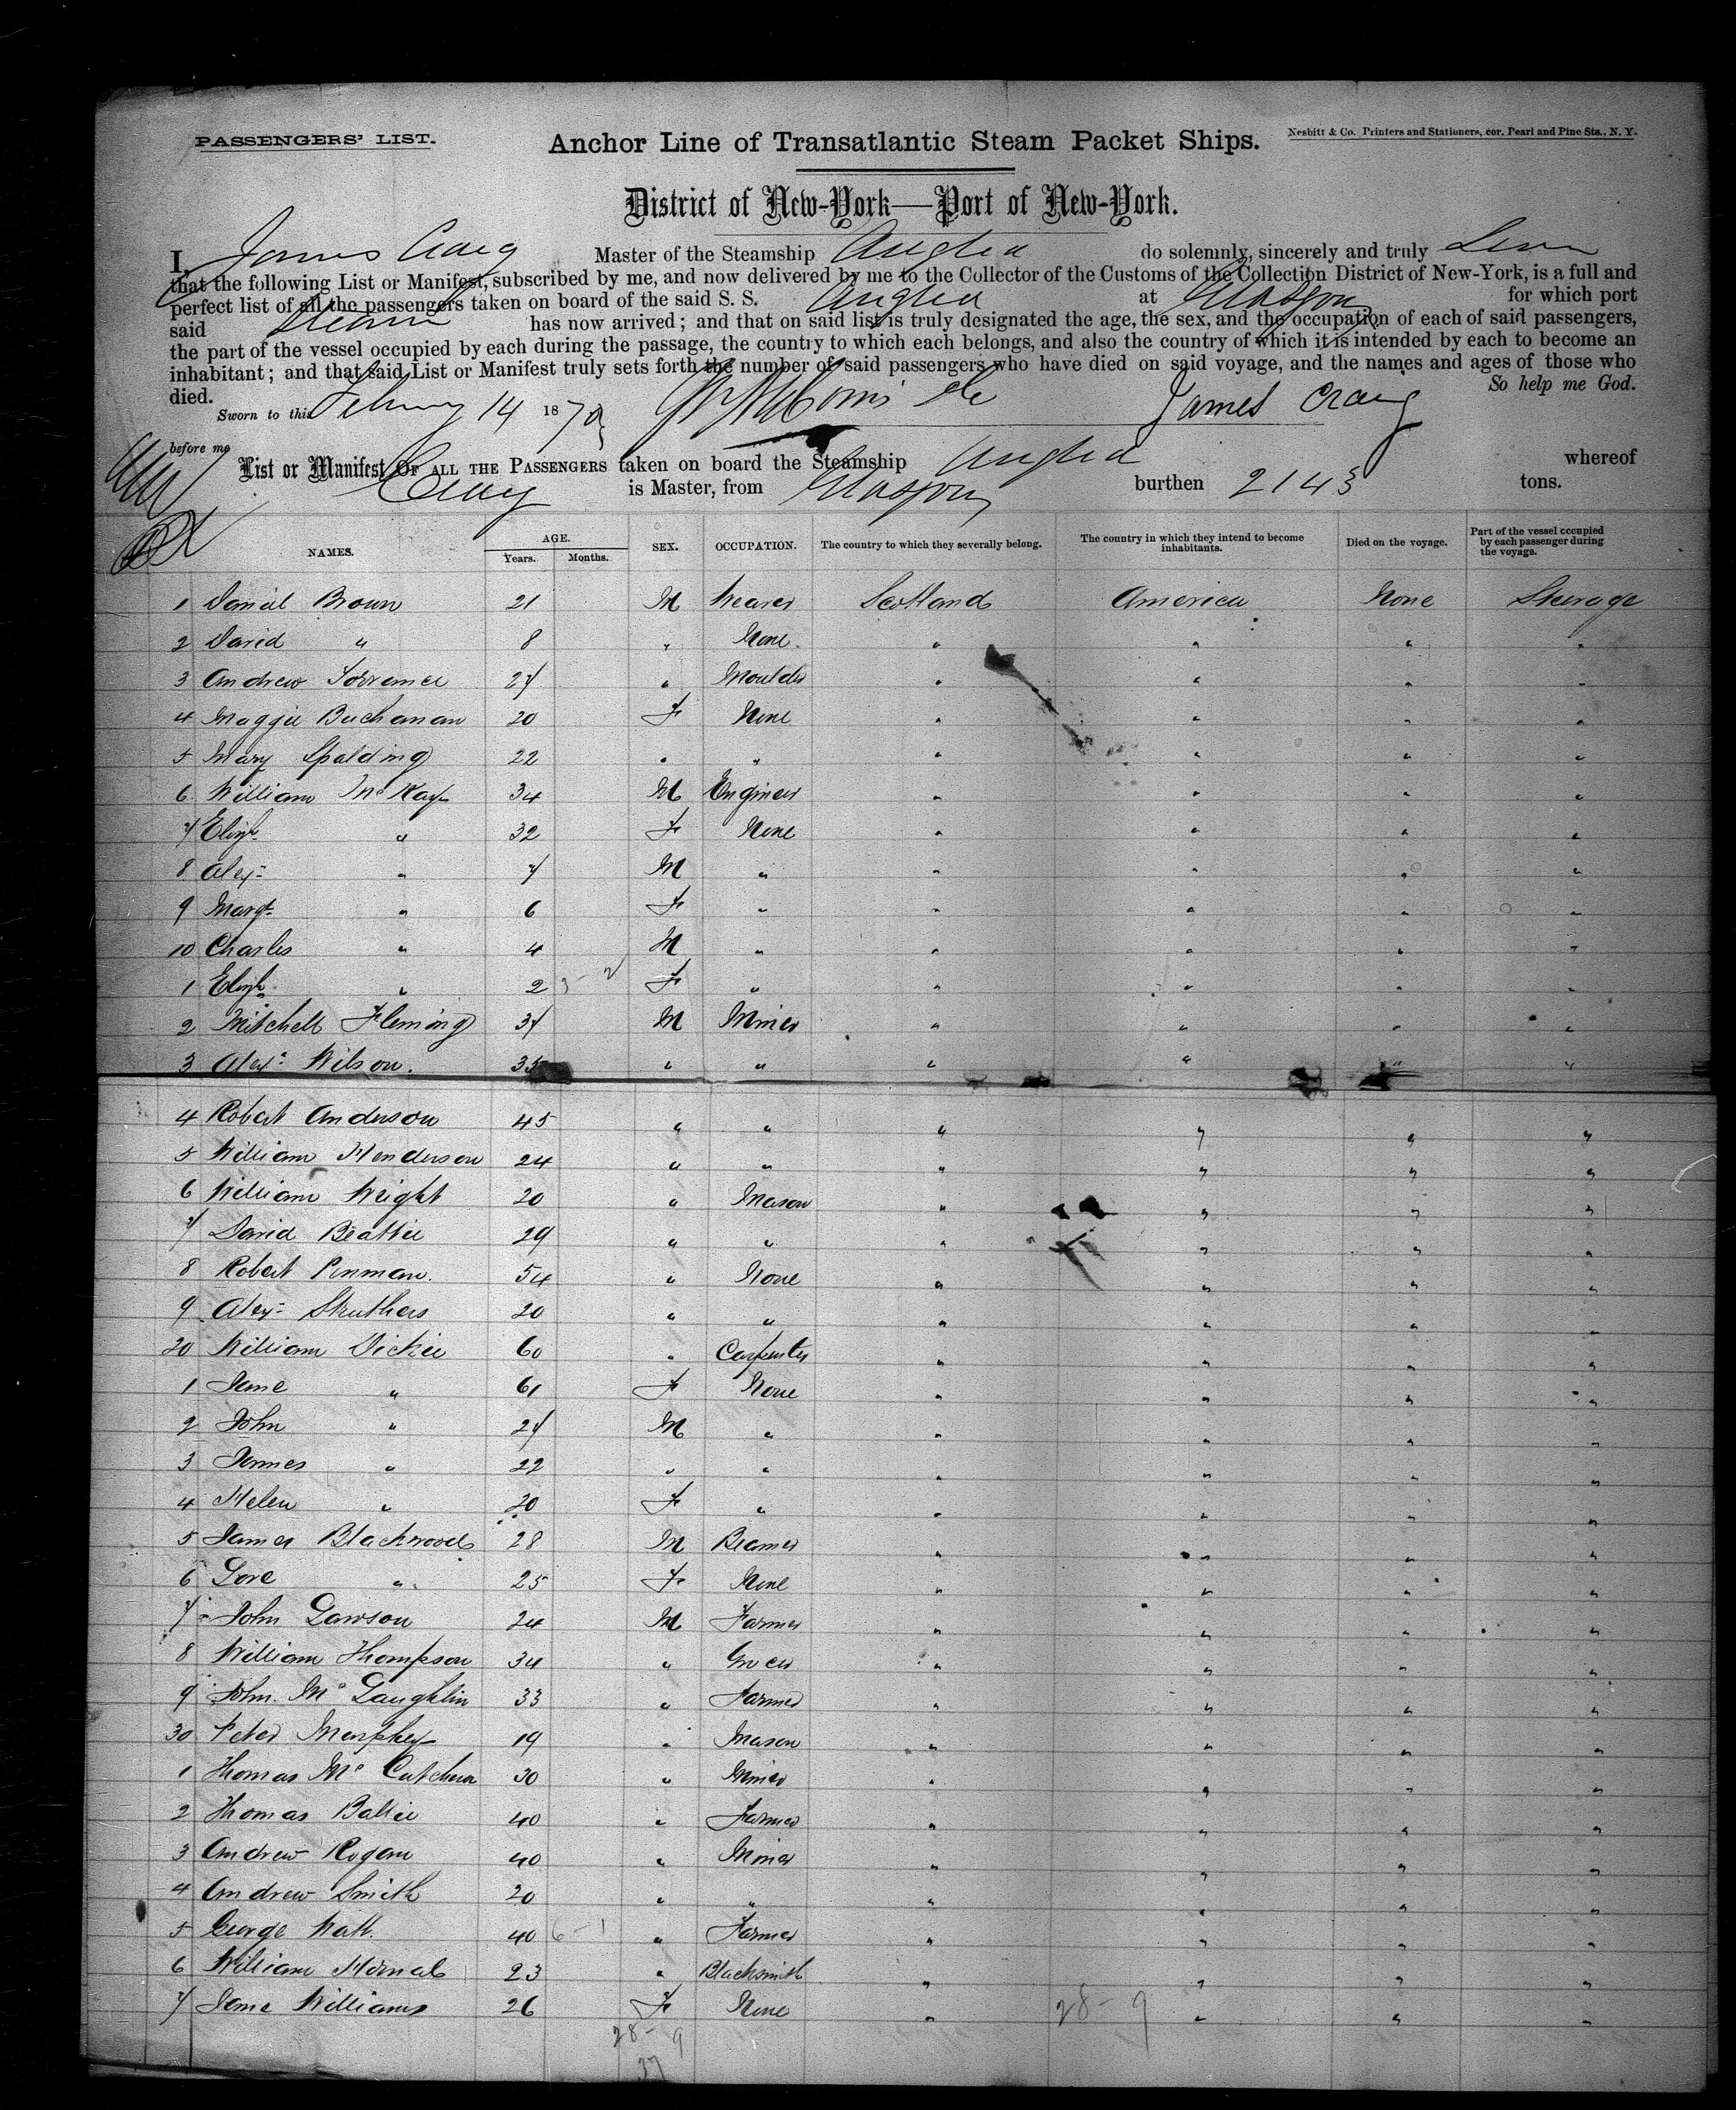 PASSENGERS' LIST.
Anchor Line of Transatlantic Steam Packet Ships.
Nesbitt & Co. Printers and Stationers, cor. Pearl and Pine Sts., N. Y.
District of New-York—Port of New-York.
I, James Craig Master of the Steamship Anglia do solemnly, sincerely and truly
that the following List or Manifest, subscribed by me, and now delivered by me to the Collector of the Customs of the Collection District of New-York, is a full and
perfect list of all the passengers taken on board of the said S. S. Anglia at Glasgow for which port
said Steamer has now arrived; and that on said list is truly designated the age, the sex, and the occupation of each of said passengers,
the part of the vessel occupied by each during the passage, the country to which each belongs, and also the country of which it is intended by each to become an
inhabitant; and that said List or Manifest truly sets forth the number of said passengers who have died on said voyage, and the names and ages of those who
died. So help me God.
Sworn to this 14 1870 James Craig
before me
List or Manifest OF ALL THE PASSENGERS taken on board the Steamship Anglia whereof
Craig is Master, from Glasgow burthen 2143 tons.
NAMES. AGE. Years. Months. SEX. OCCUPATION. The country to which they severally belong. The country in which they intend to become inhabitants. Died on the voyage. Part of the vessel occupied by each passenger during the voyage.
1 Daniel Brown 21 M Weaver Scotland America None Steerage
2 David " 8 " None " " " "
3 Andrew Torrance 27 " Moulder " " " "
4 Maggie Buchanan 20 F None " " " "
5 Mary Spalding 22 " " " " " "
6 William McKay 34 M Engineer " " " "
7 Elizh " 32 F None " " " "
8 Alexr " 7 M " " " " "
9 Margt " 6 F " " " " "
10 Charles " 4 M " " " " "
1 Elizh " 2 F " " " " "
2 Mitchell Fleming 37 M Miner " " " "
3 Alexr Wilson. 35 " " " " " "
4 Robert Anderson 45 " " " " " "
5 William Henderson 24 " " " " " "
6 William Wright 20 " Mason " " " "
7 David Beattie 29 " " " " " "
8 Robert Penman. 54 " None " " " "
9 Alexr Struthers 20 " " " " " "
20 William Dickie 60 " Carpenter " " " "
1 Jane " 61 F None " " " "
2 John " 27 M " " " " "
3 James " 22 " " " " " "
4 Helen " 20 F " " " " "
5 James Blackwood 28 M Beamer " " " "
6 " 25 F None " " " "
7 John Lawson 24 M Farmer " " " "
8 William Thompson 34 " Grocer " " " "
9 John McLaughlin 33 " Farmer " " " "
30 Peter Murphy 19 " Mason " " " "
1 Thomas McCutcheon 30 " Miner " " " "
2 Thomas 40 " Farmer " " " "
3 Andrew Rogan 40 " Miner " " " "
4 Andrew Smith 20 " " " " " "
5 George Watt. 40 6-1 " Farmer " " " "
6 William 23 " Blacksmith " " " "
7 Jane Williams 26 F None " " " "
28-9 28-9
37